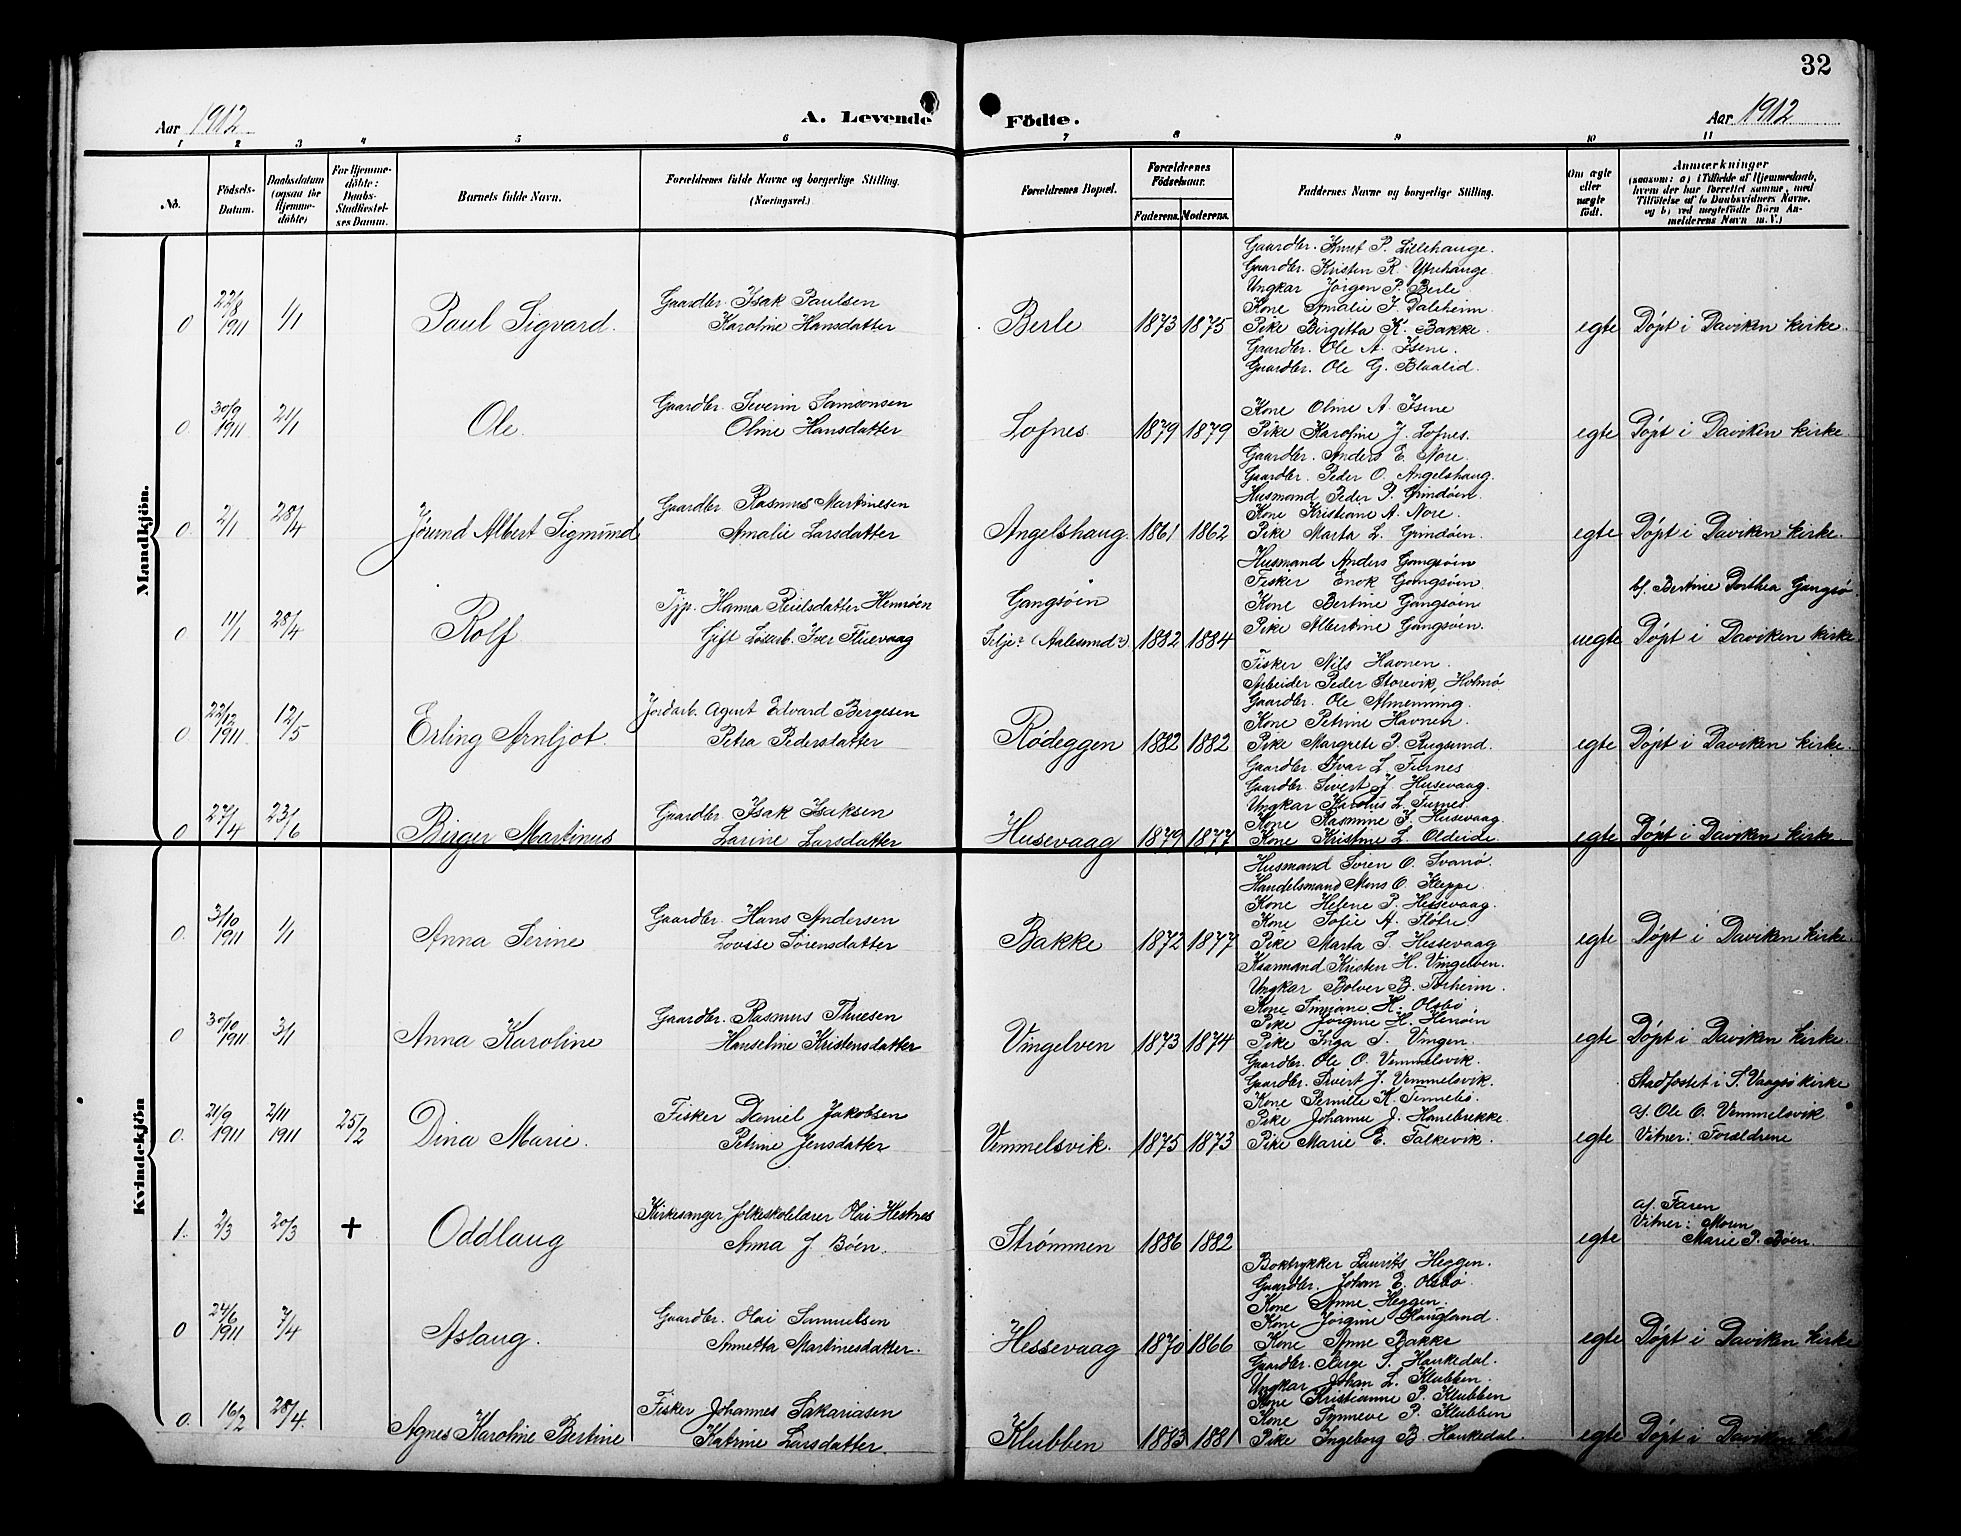 32
Aar 1912
A. Levende
Födte.
Aar 1912
1 2 3 4 5 6 7 8 9 10 11
No.
Födsels-
Datum.
Daabsdatum
(ogsaa for
Hjemme-
döbte)
For Hjemme-
döbte:
Daabs-
Stadfæstel-
ses Datum.
Barnets fulde Navn.
Forældrenes fulde Navne og borgerlige Stilling.
(Næringsvei.)
Forældrenes Bopæl.
Forældrenes
Födselsaar.
Faderens. Moderens.
Faddernes Navne og borgerlige Stilling.
Om ægte
eller
uægte
födt.
Anmærkninger
(saasom: a) i Tilfælde af Hjemmedaab,
hvem der har forrettet samme, med
Tilföielse af to Daabsvidners Navne,
og b) ved uægtefödte Börn An-
melderens Navn m. V.)
Mandkjön.
0 22/8 1911 1/1 Paul Sigvard.
Gaardbr. Isak Paulsen
Karoline Hansdatter
Berle 1873 1875
Gaardbr. Knut P. Lillehauge.
Gaardbr. Kristen R. Ytrehauge
Ungkar Jørgen P. Berle
Kone Amalie J. Daleheim
Pike Birgitta K. Bakke.
Gaardbr. Ole A. Isene.
Gaardbr. Ole G. Blaalid.
egte Døpt i Daviken kirke.
0. 30/9 1911 2/1 Ole.
Gaardbr. Severin Samsonsen
Oline Hansdatter
Lofnes 1879 1879
Kone Oline A. Isene
Pike Karoline J. Lofnes.
Gaardbr. Anders E. Nore.
Gaardbr. Peder O. Angelshaug.
egte Døpt i Daviken kirke
0. 2/1 28/4 Jørund Albert Sigmund
Gaardbr Rasmus Martinesen
Amalie Larsdatter
Angelshaug. 1861 1862
Husmand Peder P. Grindøen.
Kone Kristiane A. Nore.
Pike Marta L. Grindøen.
Husmand Anders Gangsøen
egte Døpt i Daviken kirke.
0 11/1 28/4 Rolf
Tjp. Hanna Reielsdatter Hennøen
Gift Løsarb. Iver Fluevaag
Gangsøen
Selje? (Aalesund?) 1882 1884
Fisker Enok Gangsøen.
Kone Bertine Gangsøen
Pike Albertine Gangsøen.
uegte
b/. Bertine Dorthea Gangsø
Døpt i Daviken kirke
0. 22/12 1911 12/5 Erling Arnljot.
Jordarb. Agent Edvard Bergesen
Petra Pedersdatter
Rødeggen 1882 1882
Fisker Nils Havnen.
Arbeider Peder Storevik, Holmø
Gaardbr. Ole Almenning.
Kone Petrine Havnen.
Pike Margrete P. Rugsund.
Gaardbr. Ivar L. Furnes
egte Døpt i Daviken kirke.
0 27/4 23/6 Birger Martinus
Gaardbr. Isak Isaksen
Larine Larsdatter
Husevaag 1879 1877
Gaardbr. Sivert J. Husevaag.
Ungkar Karolus L. Furnes
Kone Rasmine J. Husevaag
Kone Kristine L. Oldeide.
egte Døpt i Daviken kirke
Kvindekjön
0. 31/10 1911 1/1 Anna Serine
Gaardbr. Hans Andersen
Lovise Sørensdatter
Bakke 1872 1877
Husmand Søren O. Svarø.
Handelsmand Mons O. Kleppe.
Kone Helene P. Hessevaag.
Kone Sofie A. Fløtre
Pike Marta S. Hessevaag
egte Døpt i Daviken kirke.
0 30/10 1911 3/1 Anna Karoline
Gaardbr. Rasmus Thuesen
Hanseline Kristensdatter
Vingelven 1873 1874
Kaarmand Kristen H. Vingelven.
Ungkar Bolver B. Torheim.
Kone Simiane H. Olsbø
Pike Jørgine H. Henøen
Pike Inga T. Vingen.
egte Døpt i Daviken kirke.
0. 21/9 1911 2/11 1911 25/2 Dina Marie.
Fisker Daniel Jakobsen
Petrine Jensdatter
Vemmelsvik. 1875 1873
Gaardbr. Ole O. Vemmelsvik.
Gaardbr. Sivert J. Vemmelsvik.
Kone Pernille K. Tennebø.
Pike Johanne J. Hanebrekke
Pike Marie E. Falkevik.
egte
Stadfestet i S. Vaagsø kirke
a/. Ole O. Vemmelsvik
Vitner: Forældrene
1. 2/3 20/3 + Oddlaug
Kirkesanger folkeskolelærer Olai Hestnes
Anna J. Bøen.
Strømmen 1886 1882
egte
a/. Faren
Vitner: Moren
Marie P. Bøen.
0 24/6 1911 7/4 Aslaug.
Gaardbr. Olai Samuelsen
Annetta Martinesdatter.
Hessevaag 1870 1866
Boktrykker Laurits Heggen.
Gaardbr. Johan E. Olsbø.
Kone Anne Heggen.
Kone Jørgine Haugland.
Kone Anne Bakke
egte Døpt i Daviken kirke
0. 16/2 28/4. Agnes Karoline Bertine
Fisker Johannes Sakariasen
Katrine Larsdatter.
Klubben 1883 1881
Gaardbr. Birge S. Haukedal.
Ungkar Johan L. Klubben.
Kone Kristianne P. Klubben
Kone Synneve P. Klubben
Pike Ingeborg B. Haukedal.
egte Døpt i Daviken kirke